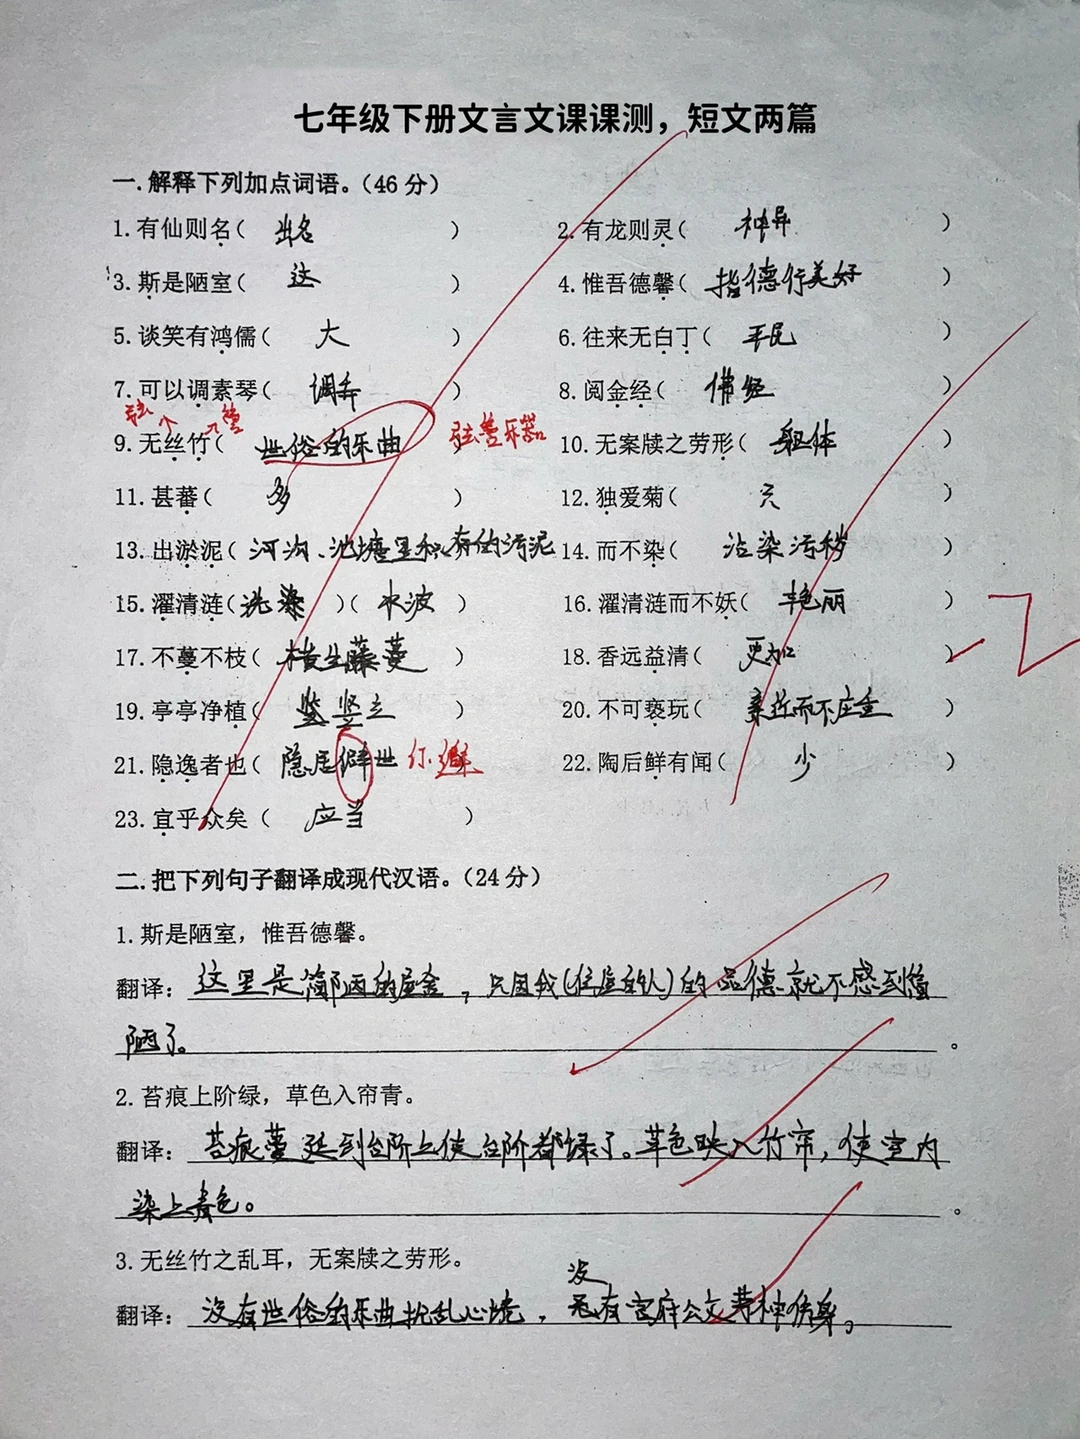 七年级下册文言文课课测，短文两篇
一.解释下列加点词语。（46分）
1.有仙则名（ 出名 ） 2.有龙则灵（ 神异 ）
3.斯是陋室（ 这 ） 4.惟吾德馨（ 指德行美好 ）
5.谈笑有鸿儒（ 大 ） 6.往来无白丁（ 平民 ）
7.可以调素琴（ 调弄 ） 8.阅金经（ 佛经 ）
9.无丝竹（ 世俗的乐曲 ） 弦管乐器 10.无案牍之劳形（ 躯体 ）
11.甚蕃（ 多 ） 12.独爱菊（ 只 ）
13.出淤泥（ 河沟、池塘里积有的污泥 14.而不染（ 沾染污秽 ）
15.濯清涟（ 洗涤 ）（ 水波 ） 16.濯清涟而不妖（ 艳丽 ）
17.不蔓不枝（ 横生藤蔓 ） 18.香远益清（ 更加 ）
19.亭亭净植（ 竖立 ） 20.不可亵玩（ 亲近而不庄重 ）
21.隐逸者也（ 隐居僻世 避 22.陶后鲜有闻（ 少 ）
23.宜乎众矣（ 应当 ）
二.把下列句子翻译成现代汉语。（24分）
1.斯是陋室，惟吾德馨。
翻译：这里是简陋的屋舍，只因我(住屋的人)的品德就不感到简
陋了。
2.苔痕上阶绿，草色入帘青。
翻译：苔痕蔓延到台阶上使台阶都绿了。草色映入竹帘，使室内
染上青色。
3.无丝竹之乱耳，无案牍之劳形。
没
翻译：没有世俗的乐曲扰乱心境，有官府公文劳神伤身。